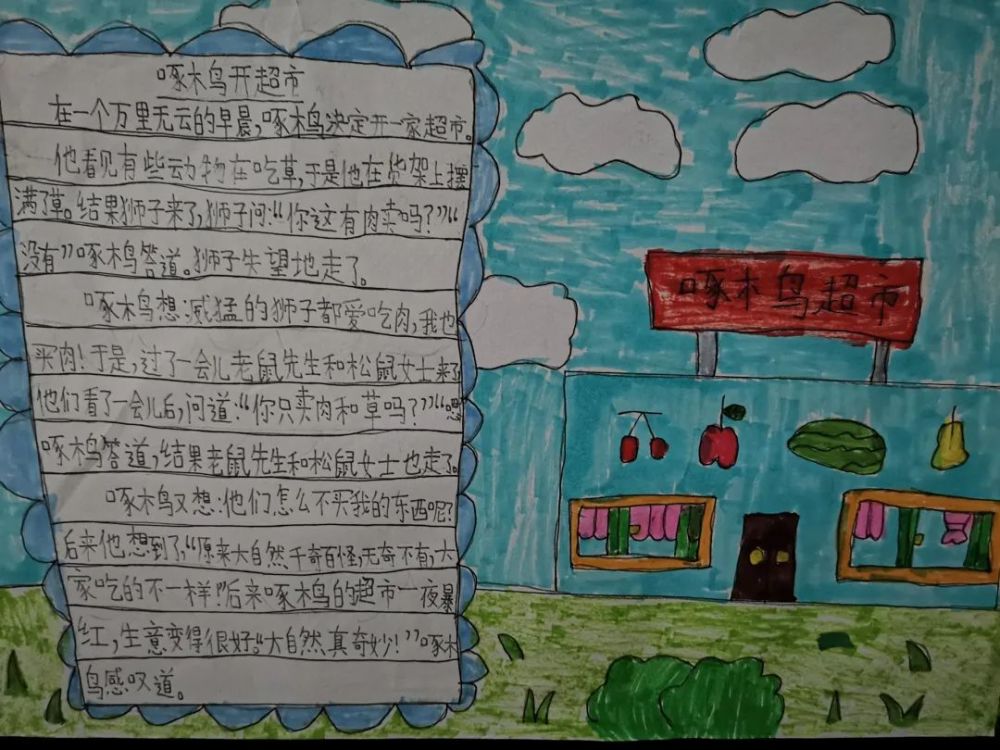 啄木鸟开超市
在一个万里无云的早晨,啄木鸟决定开一家超市。
他看见有些动物在吃草,于是他在货架上摆
满了草。结果狮子来了,狮子问:“你这有肉卖吗?”“
没有”啄木鸟答道。狮子失望地走了。
啄木鸟想:威猛的狮子都爱吃肉,我也
买肉!于是,过了一会儿老鼠先生和松鼠女士来了
他们看了一会儿后,问道:“你只卖肉和草吗?”“嗯
啄木鸟答道,结果老鼠先生和松鼠女士也走了。
啄木鸟又想:他们怎么不买我的东西呢?
后来他想到了,“原来大自然千奇百怪,无奇不有,大
家吃的不一样!”后来啄木鸟的超市一夜暴
红,生意变得很好。“大自然真奇妙!”啄木
鸟感叹道。
啄木鸟超市